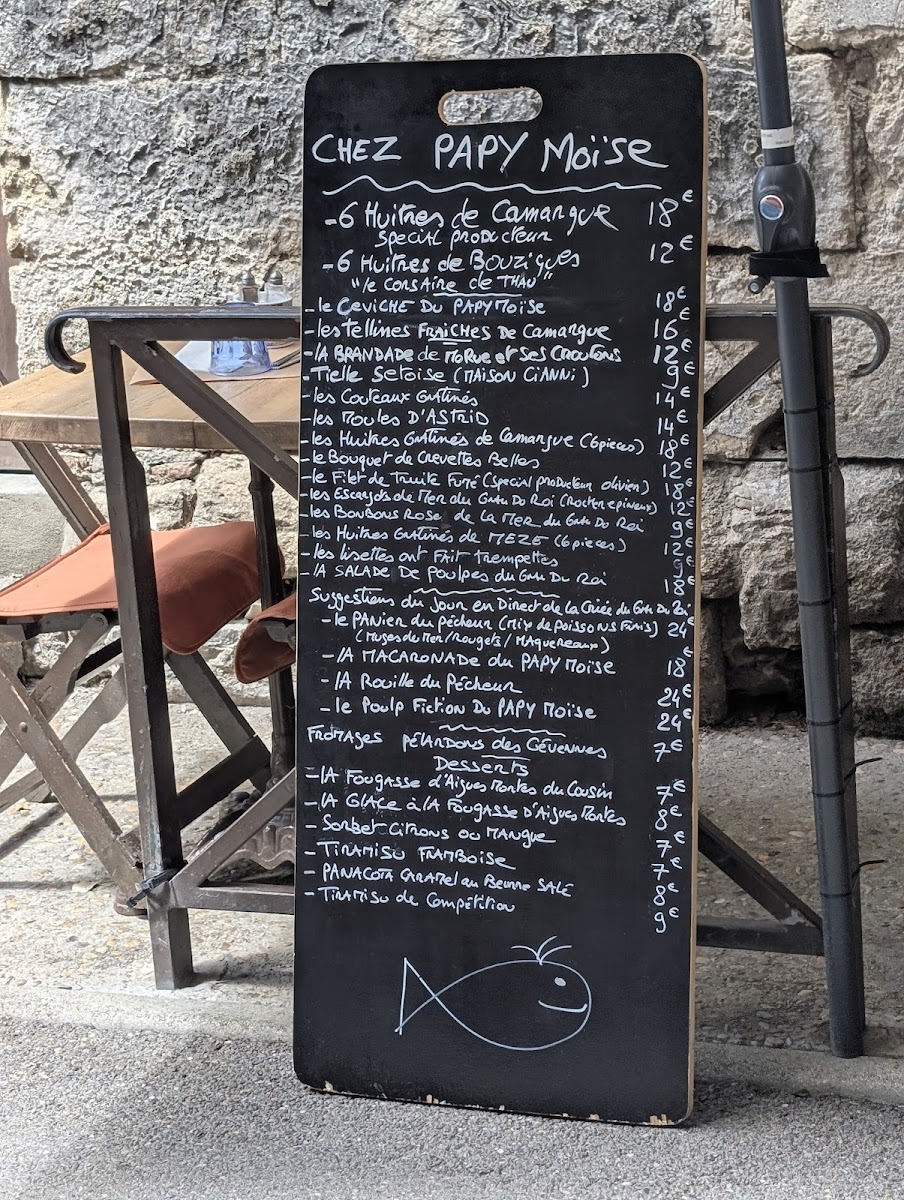 CHEZ PAPY Moïse
-6 Huitres de Camargue 18€
Special producteur
-6 Huitres de Bouzigues 12€
"le Corsaire de THAU"
-le CEVICHE DU PAPY MOïSE 18€
-les tellines FRAICHES DE Camargue 16€
-lA BRANDADE de MORUE et SES CROUTONS 12€
-Tielle Setoise (MAISON CIANNI) 9€
-les Couteaux Gratinés 14€
-les Moules D'ASTRID 14€
-les Huitres Gratinés de Camargue (6 pieces) 18€
-le Bouquet de Crevettes Belles 12€
-le Filet de Truite Fumé (special producteur cévien) 18€
-les Escargots de Mer du Grau Du Roi 12€
-les BonBons Rose de la Mer du Grau Du Roi 9€
-les Huitres Gratinés de MEZE (6 pieces) 12€
-les lisettes ont FAIT trempettes 9€
-lA SALADE DE Poulpes du Grau Du Roi 18€
Suggestions du Jour en Direct de la Criée du Grau Du Roi
-le PANier du pêcheur (Mix de poissons Frais) 24€
(Muges de Mer/Rougets/MAquereaux)
-lA MACARONADE du PAPY Moïse 18€
-lA Rouille du Pêcheur 24€
-le Poulp Fiction Du PAPY Moïse 24€
FROMAGES pélardons des Cévennes 7€
Desserts
-lA Fougasse d'Aigues Mortes du Cousin 7€
-lA GLACE à lA Fougasse D'Aigues Mortes 8€
-Sorbet Citrons ou MANgue 7€
-TIRAMISU FRAMBOISE 7€
-PANACOTA CARAMel au Beurre SALÉ 8€
-TIRAMISU de Compétition 9€